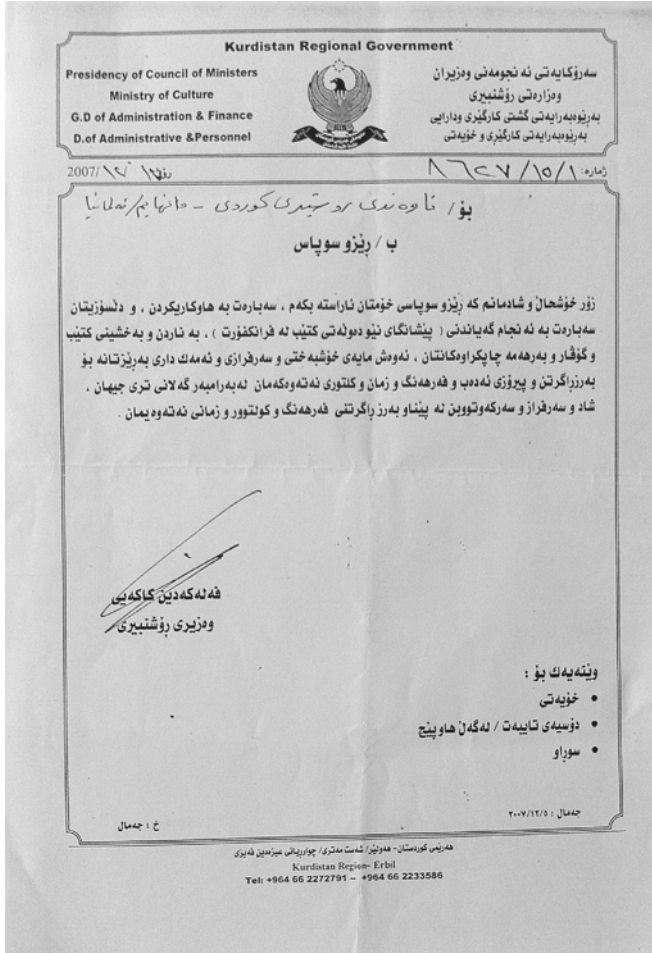 Kurdistan Regional Government
Presidency of Council of Ministers
Ministry of Culture
G.D of Administration & Finance
D.of Administrative &Personnel
سەرۆکایەتی ئەنجومەنی وەزیران
وەزارەتی رۆشنبیری
بەڕێوەبەرایەتی گشتی کارگێری ودارایی
بەڕێوەبەرایەتی کارگێری و خۆیەتی
2007/ ١٢/
ژمارە: ٨٦٢٧/١٥/١
بۆ/ ناوەندی رۆشنبیری کوردی - مانهایم/ئەلمانیا
ب / ڕێزو سوپاس
زۆر خۆشحاڵ و شادمانم کە ڕێزو سوپاسی خۆمتان ئاراستە بکەم ، سەبارەت بە هاوکاریکردن ، و دڵسۆزیتان
سەبارەت بە ئەنجام گەیاندنی ( پێشانگای نێودەوڵەتی کتێب لە فرانکفۆرت ) ، بە ناردن و بەخشینی کتێب
و گۆڤار و بەرهەمە چاپکراوەکانتان ، ئەوەش مایەی خۆشبەختی و سەرفرازی و ئەمەك داری بەڕێزتانە بۆ
بەرزڕاگرتن و پیرۆزی ئەدەب و فەرهەنگ و زمان و کلتوری نەتەوەکەمان لەبەرامبەر گەلانی تری جیهان ،
شاد و سەرفراز و سەرکەوتووبن لە پێناو بەرز ڕاگرتنی فەرهەنگ و کولتوور و زمانی نەتەوەیمان .
فەلەکەدین کاکەیی
وەزیری رۆشنبیری
وێنەیەك بۆ :
• خۆیەتی
• دۆسیەی تایبەت / لەگەڵ هاوپێچ
• سوڕاو
جەمال : ٢٠٠٧/١٢/٥
خ : جەمال
هەرێمی کوردستان- هەولێر/ شەست مەتری/ چوارڕیانی عیزەدین فەیزی
Kurdistan Region- Erbil
Tel: +964 66 2272791 – +964 66 2233586